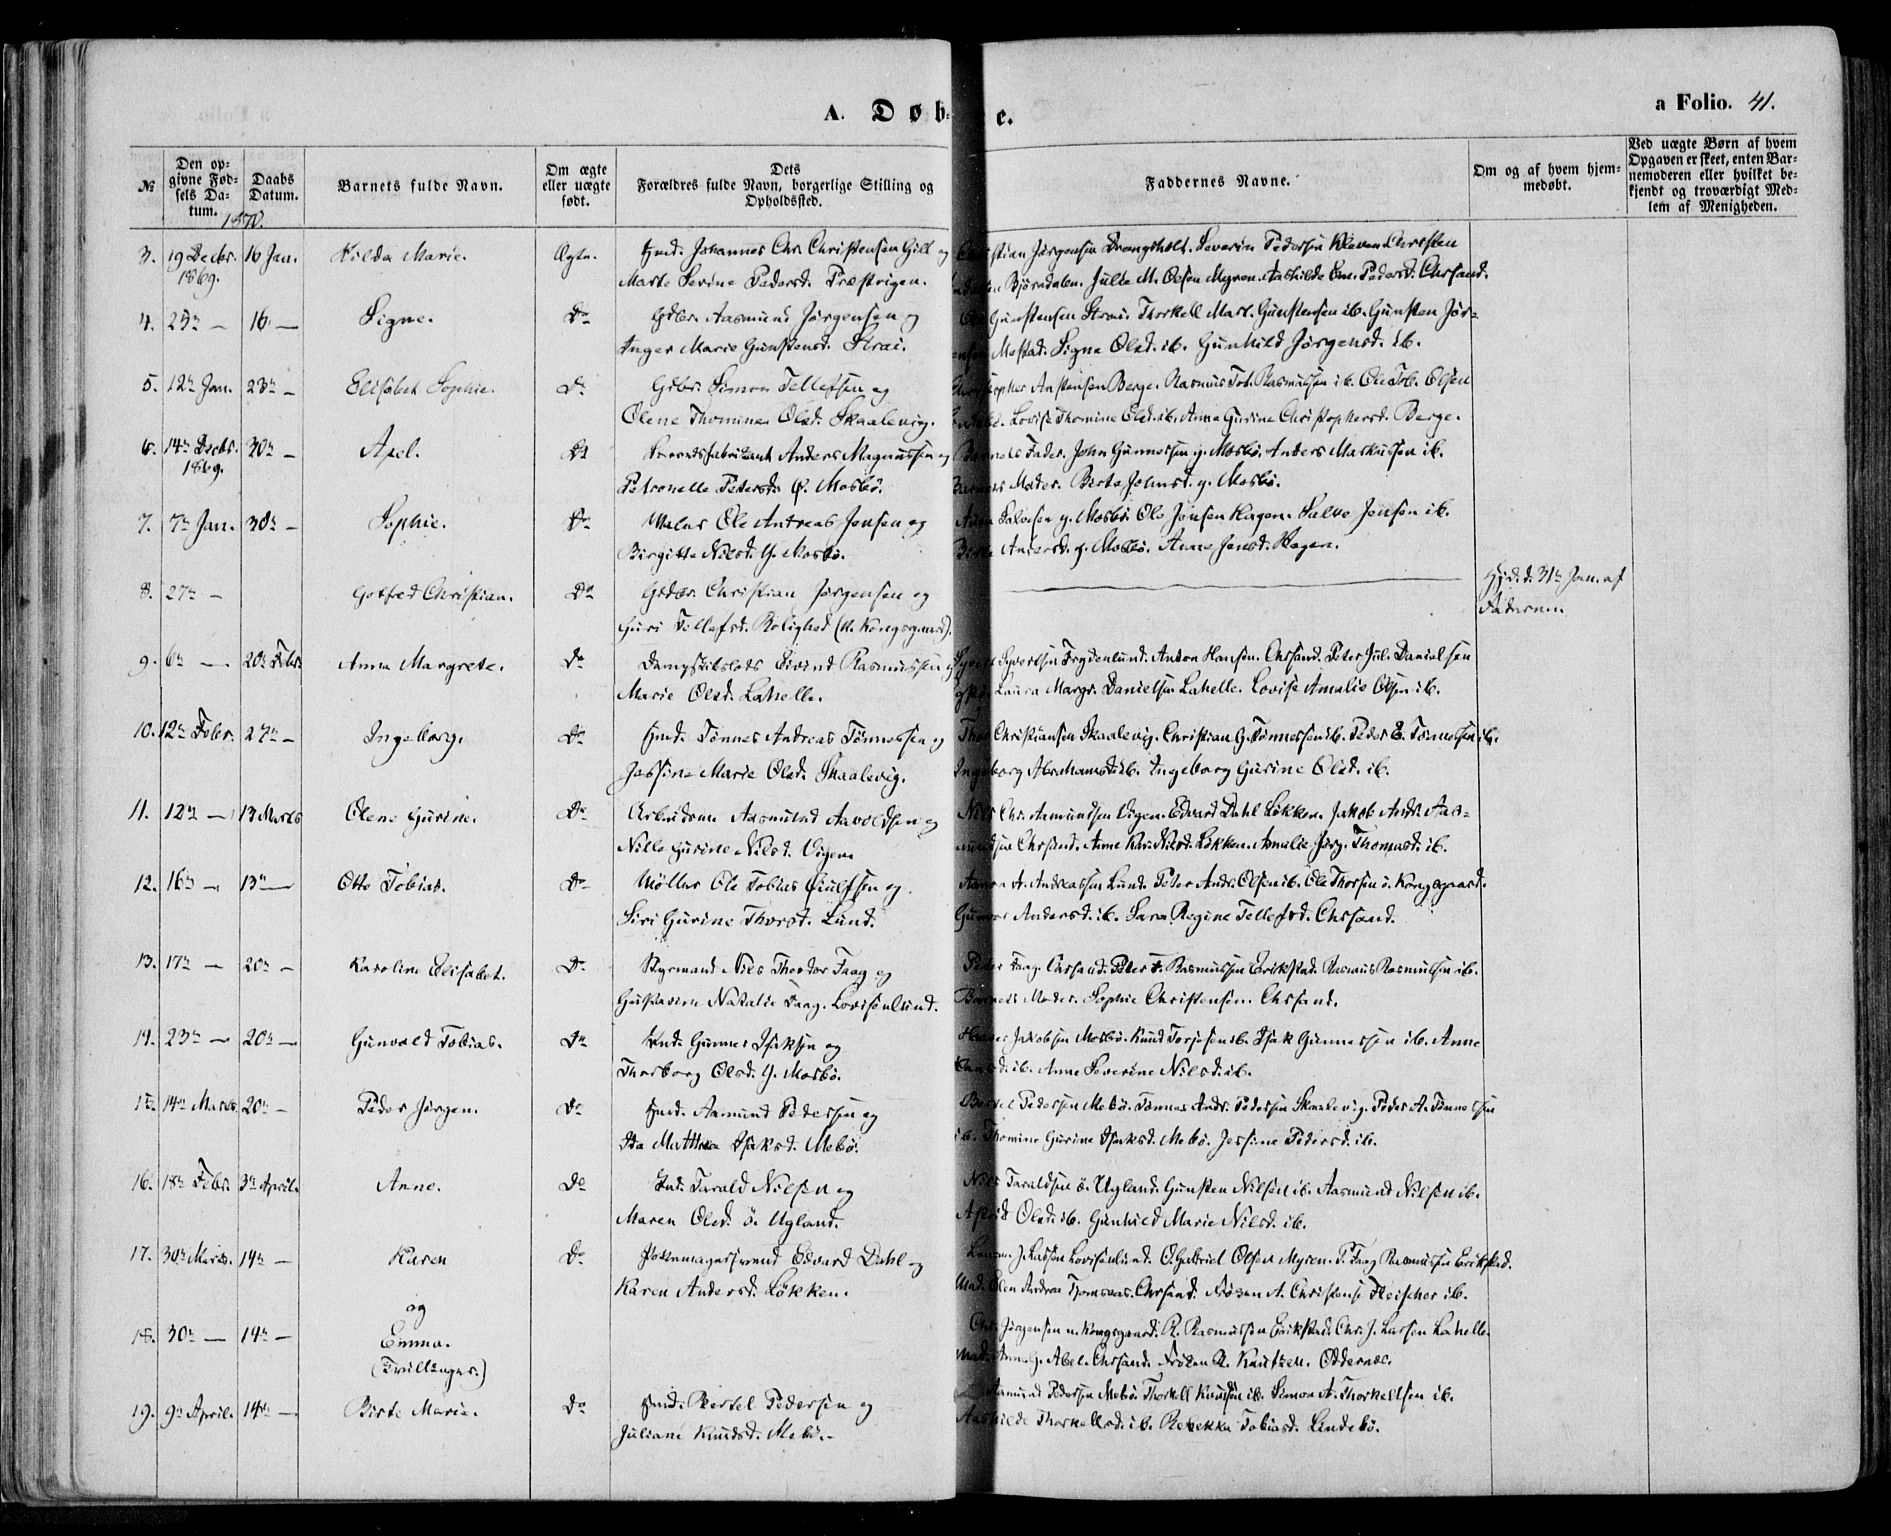 A. Døb- e.
a Folio. 41.
№
Den opgivne Fødsels Datum.
Daabs Datum.
Barnets fulde Navn.
Om ægte eller uægte født.
Dets Forældres fulde Navn, borgerlige Stilling og Opholdssted.
Faddernes Navne.
Om og af hvem hjemmedøbt.
Ved uægte Børn af hvem Opgaven er skeet, enten Barnemoderen eller hvilket bekjendt og troværdigt Medlem af Menigheden.
1870.
3. 19 Decbr. 16 Jan. Hilda Marie. Ægte. Gmd. Johannes Chr. Christensen Gill og Jørgensen Drangsholt. Severin Pedersen Kleven Christen
1869. Marte Sevine Pedersd. Præstvigen. Bjørndalen. Julie M. Olsen Myren. Aashilde Em. Pedersd. Chrsand.
4. 25de — 16 — Signe. Do Gdbr. Aasmund Jørgensen og Gunstensen Strai. Thorkell Mart. Gunstensen ib. Gunsten Jør-
Inger Marie Gunstensd. Strai. Mostad. Signe Olsd. ib. Gunhild Jørgensd. ib.
5. 12te Jan. 23de — Elisabet Sophie. Do Gdbr. Simon Tellefsen og Anstensen Berge. Rasmus Tob. Rasmussen ib. Ole Tob. Olsen
Olene Thomine Olsd. Skaalevig. Lovise Thomine Olsd. ib. Anne Gurine Christophersd. Berge.
6. 14de Decbr. 30te — Axel. Do Anders Magnussen og Barnets Fader. John Gunnersen y. Mosbø. Anders Markussen ib.
1869. Petronelle Pedersd. y. Mosbø. Barnets Moder. Berte Johnsd. y. Mosbø.
7. 7de Jan. 30te — Sophie. Do Maler Ole Andreas Jensen og Salvesen y. Mosbø. Ole Jensen Hagen. Salve Jensen ib.
Birgitte Nilsd. Y. Mosbø. Andersd. y. Mosbø. Anne Jensd. Hagen.
8. 27de — Gotfred Christian. Do Gdbr. Christian Jørgensen og Hjd. d. 31te Jan. af
Guri Tellefsd. Rolighed (n. Kongsgaard). Faderen.
9. 6te — 20de Febr. Anna Margrete. Do Eivind Rasmussen Syvertsen Frydenlund. Anton Hansen. Chrsand. Peter Jul. Danielsen
Marie Olsd. Lahelle. Laura Margr. Danielsen Lahelle. Lovise Amalie Olsen ib.
10. 12te Febr. 27de — Ingeborg. Do Gmd. Tønnes Andreas Tønnessen og Christiansen Skaalevig. Christian G. Tønnessen ib. Peder E. Tønnessen ib.
Jassine Marie Olsd. Skaalevig. Ingeborg Abrahamsd. ib. Ingeborg Gurine Olsd. ib.
11. 12te — 13 Marts Olene Gurine. Do Arbeidsm. Aasmund Aavoldsen og Nils Chr. Aamundsen Vigen. Edvard Dahl Løkken. Jakob Andr. Aas-
Nille Gurine Nilsd. Vigen. Chrsand. Anne Kar. Nilsd. Løkken. Amalie Jørg. Thomasd. ib.
12. 16de — 13de — Otto Tobias. Do Møller Ole Tobias og A. Andreassen Lund. Peter Andr. Olsen ib. Ole Thorsen ø. Kongsgaard.
Siri Gurine Thorsd. Lund. Andersd. ib. Sara Regine Tellefsd. Chrsand.
13. 17de — 20de — Karoline Elisabet. Do Styrmand Nils Theodor Faag og Peder Faag. Chrsand. Peter F. Rasmussen Erikstad. Rasmus Rasmussen ib.
Gustavine Natalie Faag. Lovisenlund. Barnets Moder. Sophie Christensen. Chrsand.
14. 23de — 20de — Gunvald Tobias. Do Gunner Isaksen og Jakobsen Mosbø. Knud Torjesen ib. Isak Gunnersen ib. Anne
Thorborg Olsd. Y. Mosbø. ib. Anne Severine Nilsd. ib.
15. 14de Marts 20de — Peder Jørgen. Do Gmd. Aamund Pedersen og Bertel Pedersen Mebø. Tønnes Andr. Pedersen Skaalevig. Peder A. Tønnessen
Ida Mathea Isaksd. Mebø. ib. Thomine Gurine Isaksd. Mebø. Jessine Pedersd. ib.
16. 18de Febr. 3de April. Anne. Do Tarald Nilsen og Nils Taraldsen ø. Ugland. Gunsten Nilsen ib. Aasmund Nilsen ib.
Maren Olsd. ø. Ugland. Olsd. ib. Gunhild Marie Nilsd. ib.
17. 30te Marts. 14de — Karen Do Edvard Dahl og J. Lassen Lovisenlund. O. Gabriel Olsen Myren. P. Faag Rasmussen Erikstad.
Karen Andersd. Løkken. Andrea Chrsand. Frøken A. Christense Fleischer ib.
og
18. 30te — 14de — Emma. Jørgensen n. Kongsgaard. R. Rasmussen Erikstad. Chr. J. Larsen Lahelle.
(Tvillinger.) Abel. Chrsand. Frøken R. Knutzen. Oddernæs.
19. 9de April. 14de — Birte Marie. Do Gmd. Bertel Pedersen og Aamund Pedersen Mebø. Thorkell Knudsen ib. Simon A. Thorkellsen ib.
Juliane Knudsd. Mebø. Aashilde Thorkellsd. ib. Rebekka Tobiasd. Lindebø.